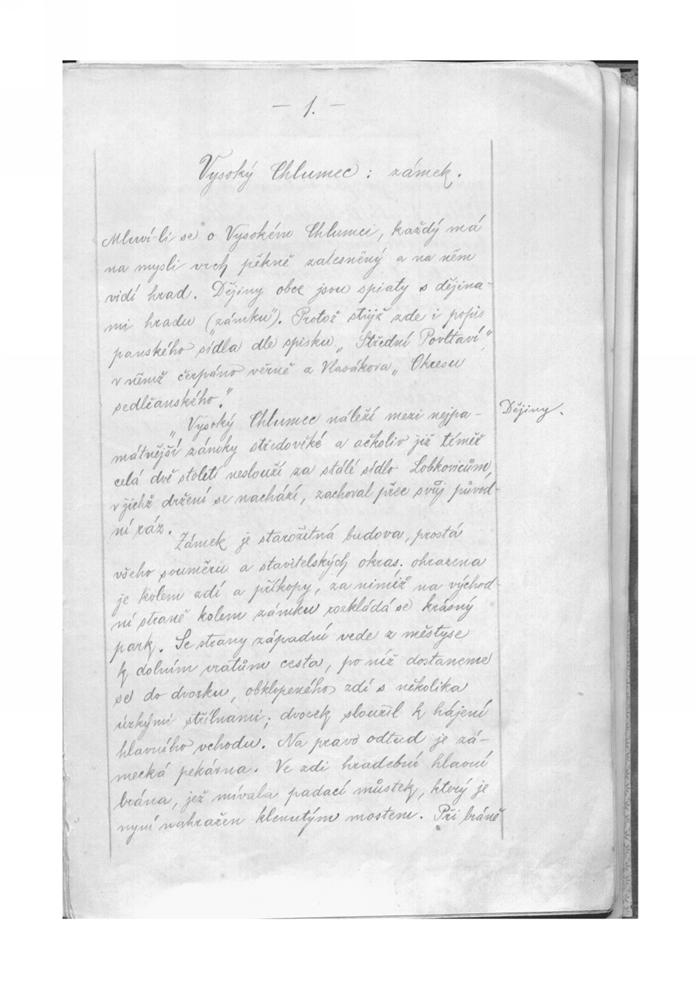 – 1. –
Vysoký Chlumec : zámek.
Mluví-li se o Vysokém Chlumci, každý má
na mysli vrch pěkně zalesněný a na něm
vidí hrad. Dějiny obce jsou spiaty s dějina-
mi hradu („zámku"). Protož stůjž zde i popis
panského sídla dle spisku „Střední Povltaví",
v němž čerpáno věrně z Vlasákova „Okresu
sedlčanského."
„Vysoký Chlumec náleží mezi nejpa-
Dějiny.
mátnější zámky středověké a ačkoliv již téměř
celá dvě století neslouží za stálé sídlo Lobkoviců,
v jichž držení se nachází, zachoval přece svůj původ-
ní ráz.
Zámek je starožitná budova, prostá
všeho souměru a stavitelských okras. ohrazena
je kolem zdí a příkopy, za nimiž na východ-
ní straně kolem zámku rozkládá se krásný
park. Se strany západní vede z městyse
k dolním vratům cesta, po níž dostaneme
se do dvorku, obklopeného zdí s několika
úzkými střílnami; dvorek sloužil k hájení
hlavního vchodu. Na pravo odtud je zá-
mecká pekárna. Ve zdi hradební hlavní
brána, jež mívala padací můstek, který je
nyní nahražen klenutým mostem. Při bráně